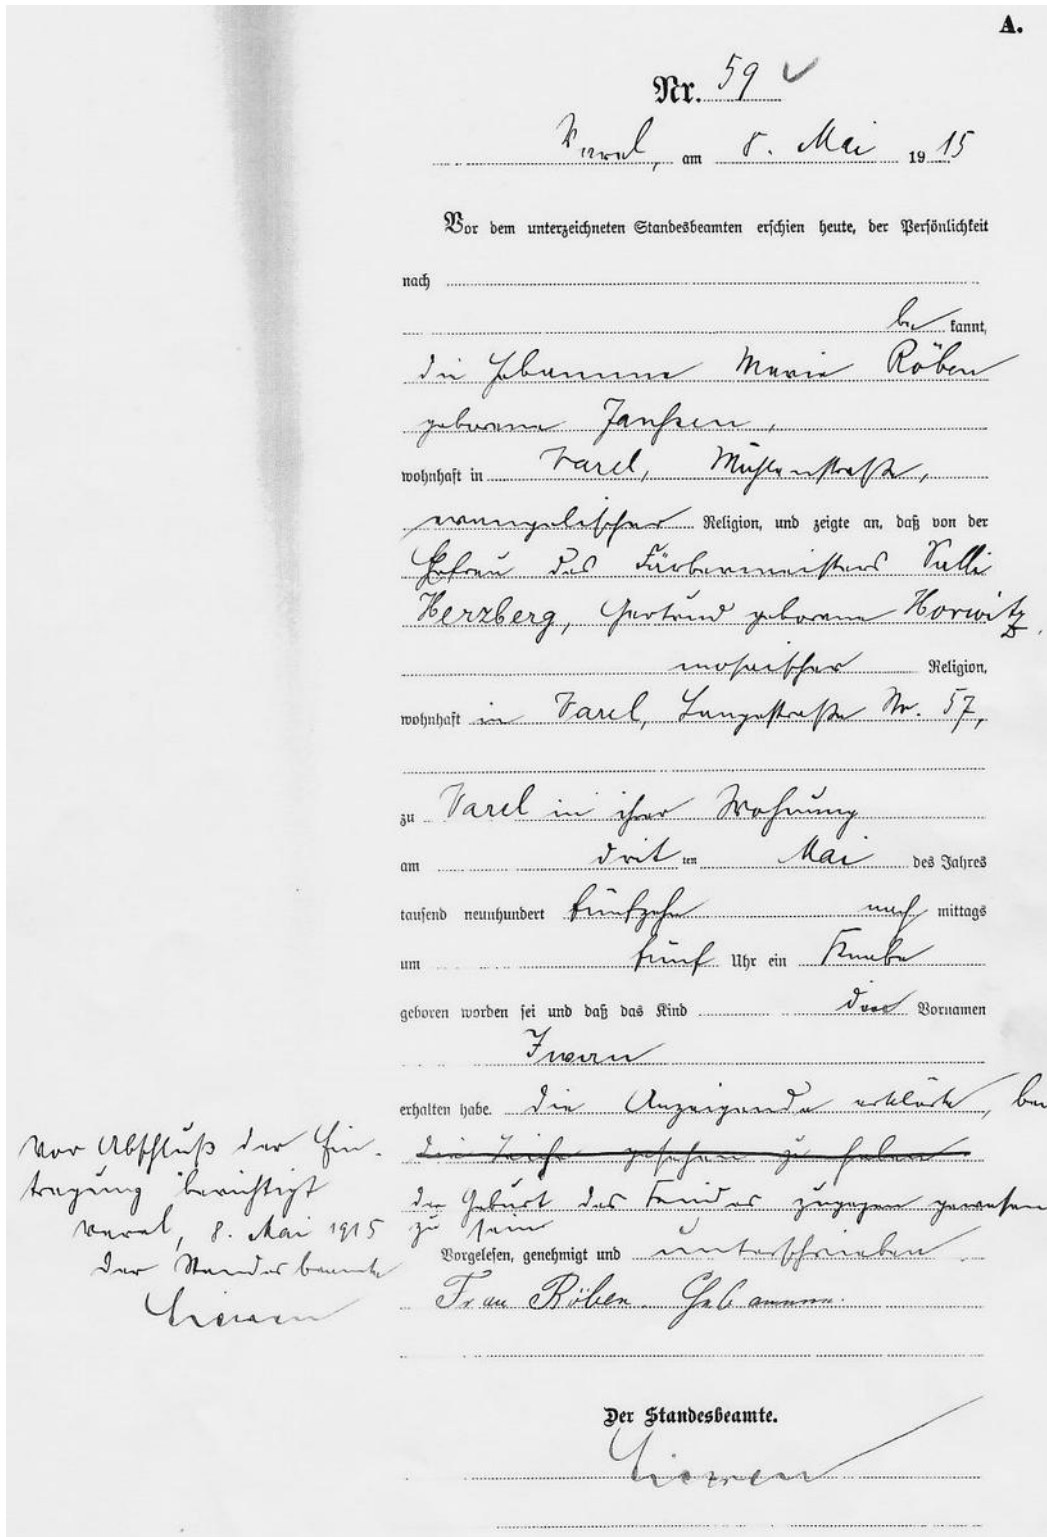 A.
Nr. 59
Varel, am 8. Mai 1915
Vor dem unterzeichneten Standesbeamten erschien heute, der Persönlichkeit
nach
be kannt,
die Hebamme Marie Röben
geborene Janßen,
wohnhaft in Varel, Mühlenstraße,
evangelischer Religion, und zeigte an, daß von der
Ehefrau des Färbermeisters Salli
Herzberg, Gertrud geborene Horwitz,
mosaischer Religion,
wohnhaft in Varel, Langestraße Nr. 57,
zu Varel in ihrer Wohnung
am dritten Mai des Jahres
tausend neunhundert fünfzehn nach mittags
um fünf Uhr ein Knabe
geboren worden sei und daß das Kind den Vornamen
Iwan
erhalten habe. Die Anzeigende erklärte, bei
die Leiche gesehen zu haben
der Geburt des Kindes zugegen gewesen
zu sein
Vorgelesen, genehmigt und unterschrieben
Frau Röben. Hebamme.
Der Standesbeamte.
Vor Abschluß der Ein-
tragung berichtigt
Varel, 8. Mai 1915
Der Standesbeamte